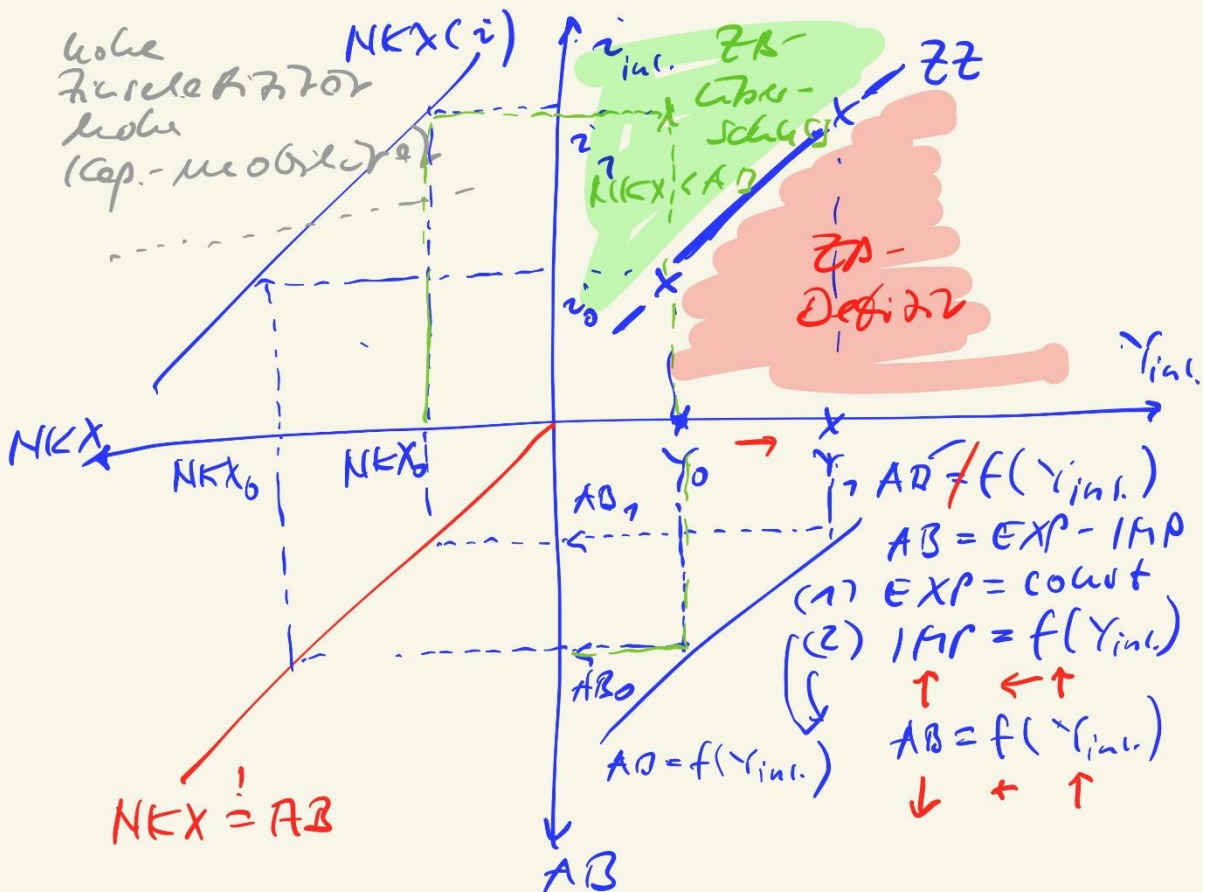 hohe
Zinselastizität
hohe
Kap.-mobilität
NKX(i)
i inl.
ZB-
über-
schuss
ZZ
i1
NKX < AB
i0
ZB-
Defizit
Yinl.
NKX
NKX0
NKX0
Y0
Y1
AB1
AB0
AB = f(Yinl.)
AB = f(Yinl.)
AB = EXP - IMP
(1) EXP = const
(2) IMP = f(Yinl.)
AB = f(Yinl.)
NKX = AB
!
AB